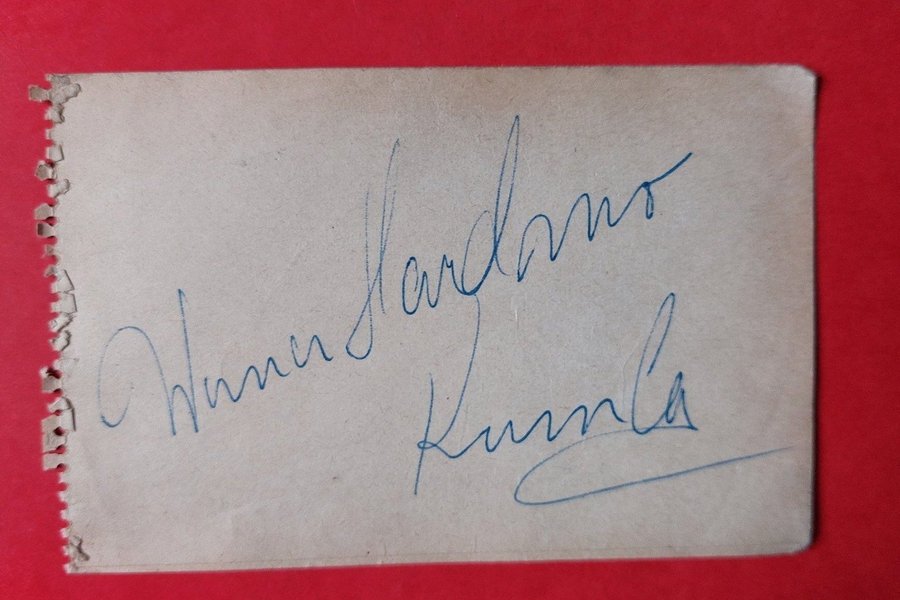 Werner Hardmo
Kumla